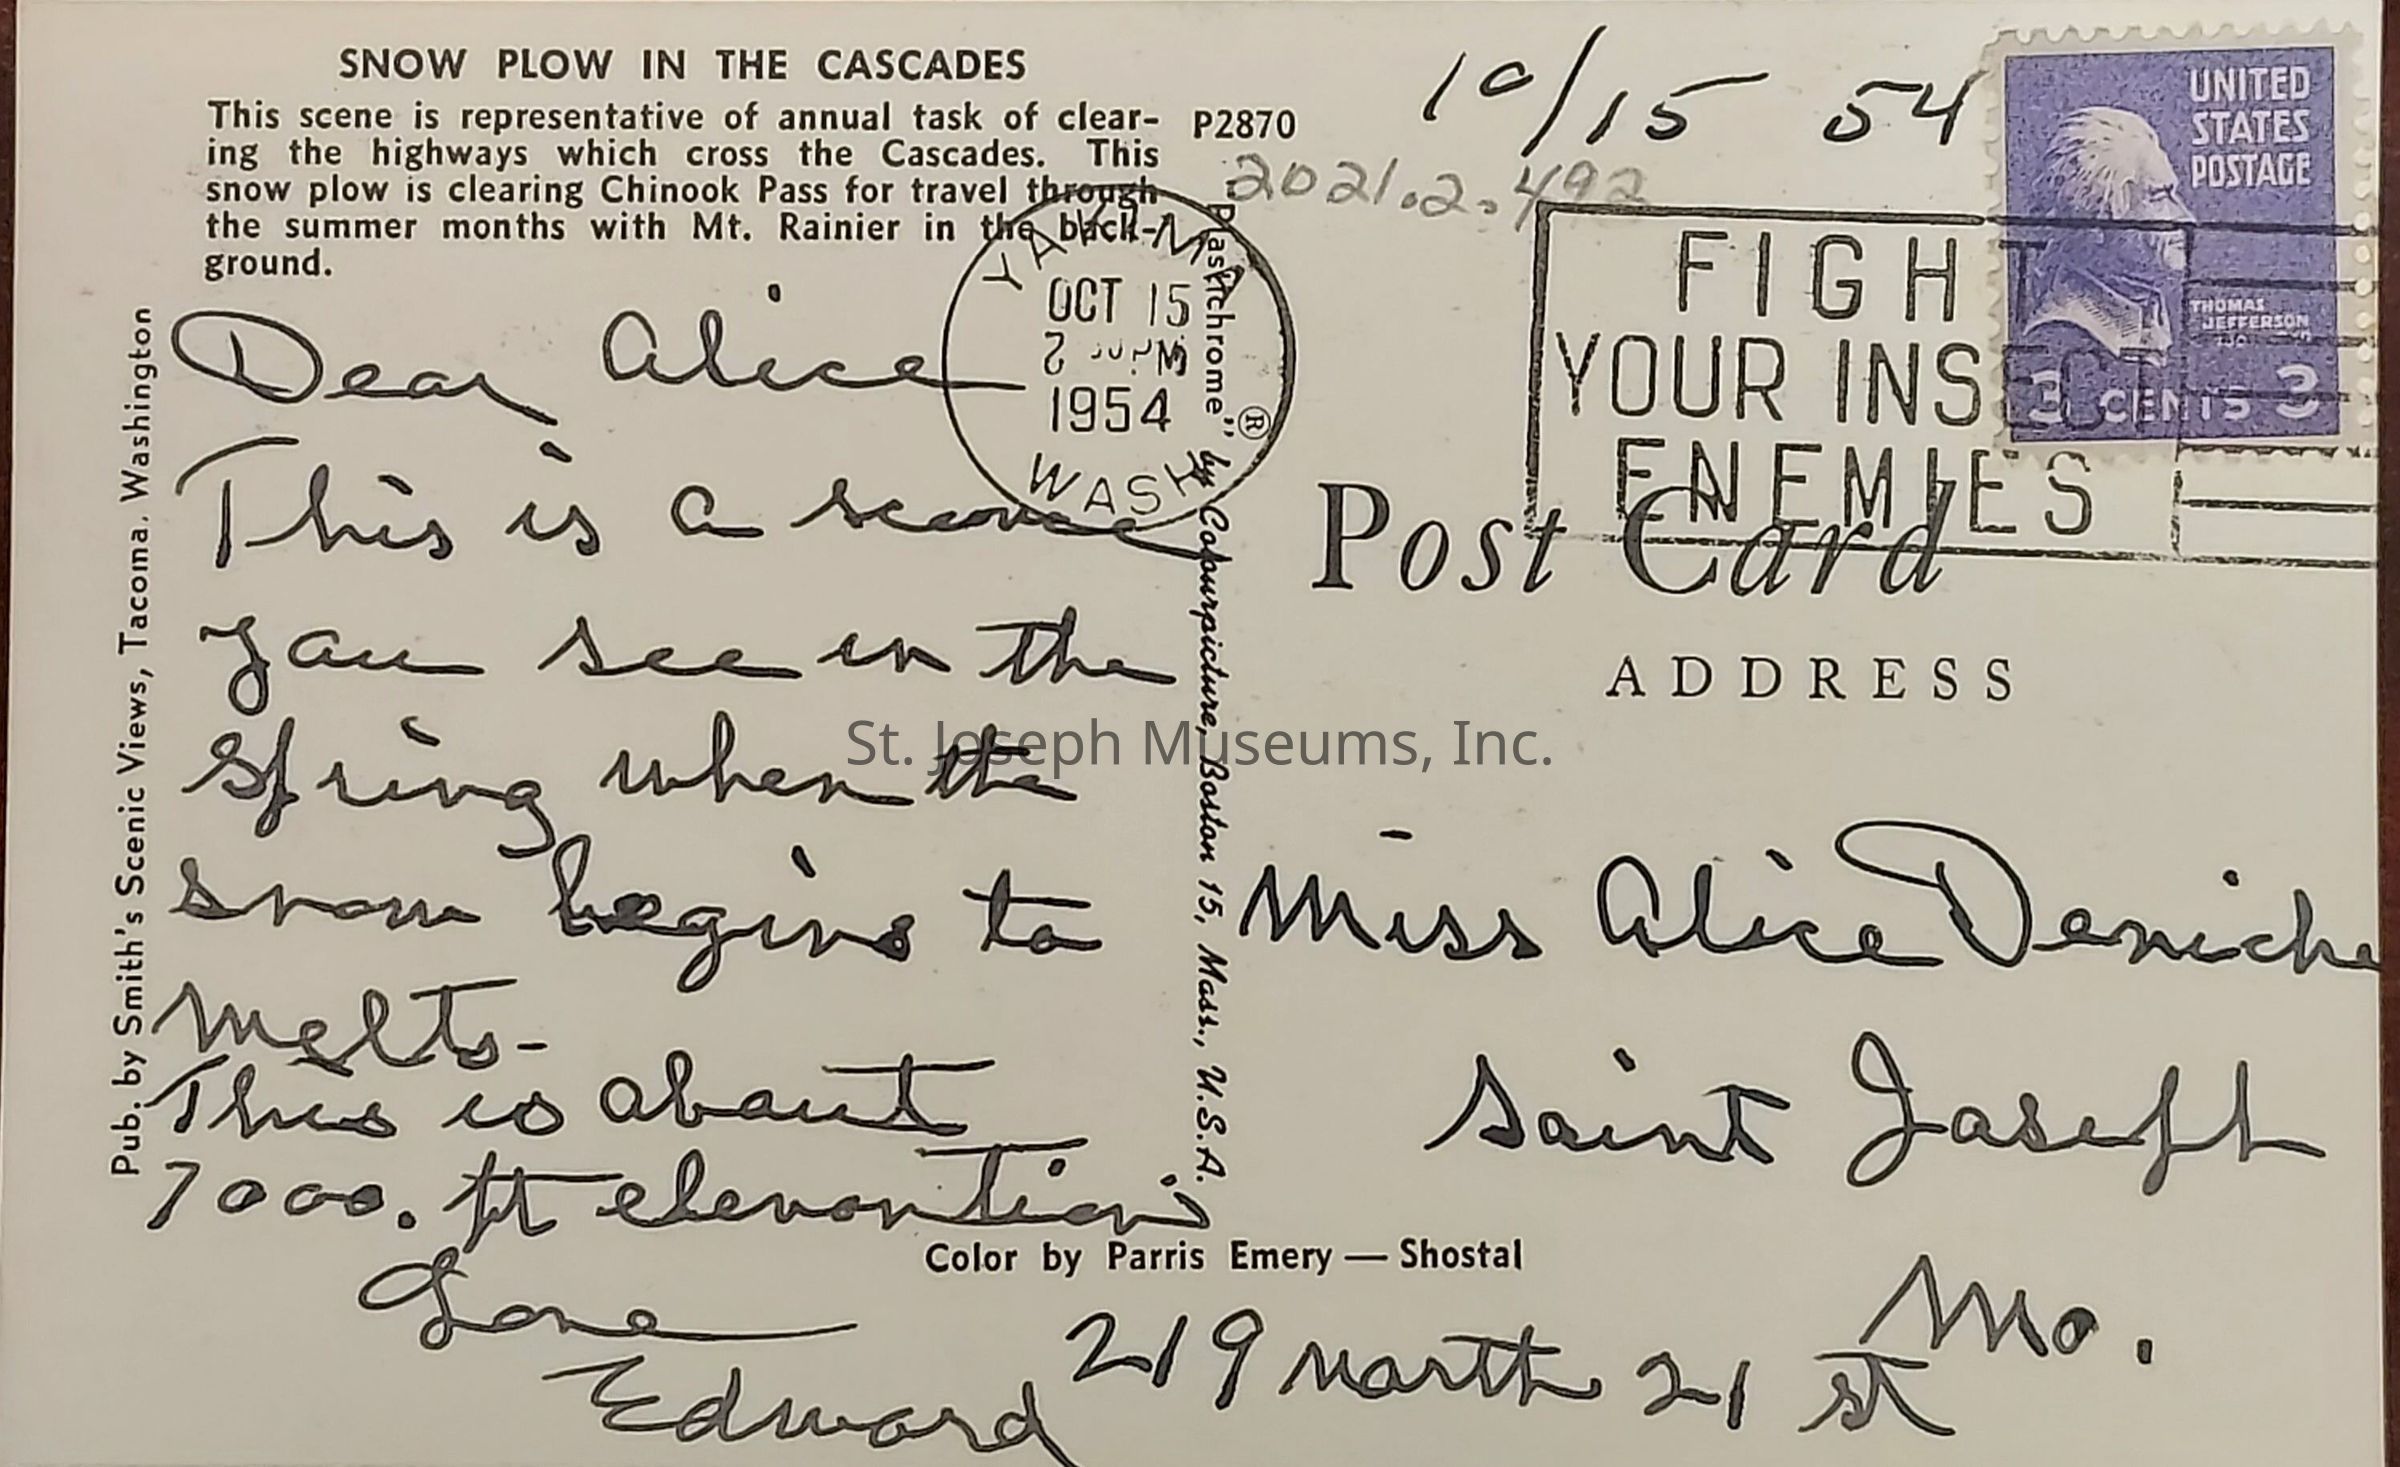 SNOW PLOW IN THE CASCADES
This scene is representative of annual task of clear-
ing the highways which cross the Cascades. This
snow plow is clearing Chinook Pass for travel through
the summer months with Mt. Rainier in the back-
ground.
P2870
10/15 54
2021.2.492
UNITED
STATES
POSTAGE
THOMAS
JEFFERSON
3 CENTS 3
YAKIMA
OCT 15
1954
WASH
FIGHT
YOUR INSECT
ENEMIES
Dear Alice
This is a scene
you see in the
Spring when the
snow begins to
melts-
This is about
7000. ft elevation
Love
Edward
Pub. by Smith's Scenic Views, Tacoma, Washington
"Plastichrome" ® by Colourpicture, Boston 15, Mass., U.S.A.
Post Card
ADDRESS
St. Joseph Museums, Inc.
Miss Alice Deniche
Saint Joseph
Mo.
219 North 21 st
Color by Parris Emery — Shostal